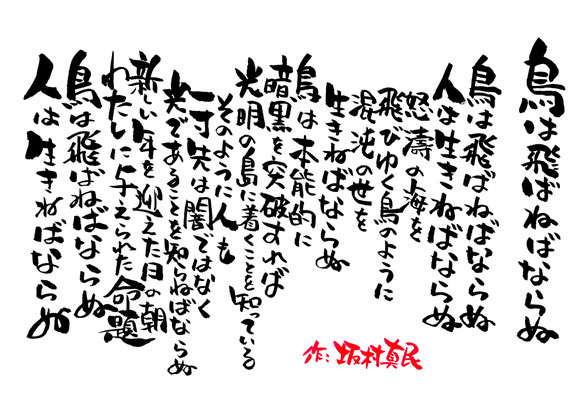 鳥は飛ばねばならぬ
鳥は飛ばねばならぬ
人は生きねばならぬ
怒濤の海を
飛びゆく鳥のように
混沌の世を
生きねばならぬ
鳥は本能的に
暗黒を突破すれば
光明の島に着くことを知っている
そのように人も
一寸先は闇ではなく
光であることを知らねばならぬ
新しい年を迎えた日の朝
わたしに与えられた命題
鳥は飛ばねばならぬ
人は生きねばならぬ
作:坂村真民